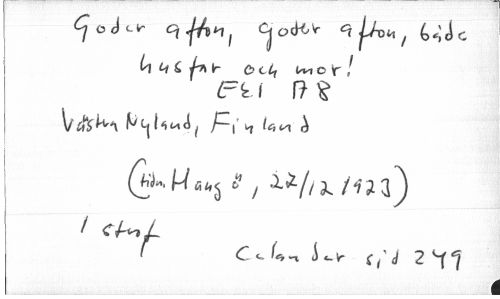 Goder afton, goder afton, både
husfar och mor!
EEI A8
Västra Nyland, Finland
(tidn. Hangö, 27/12 1923)
1 strof
Celander sid 249